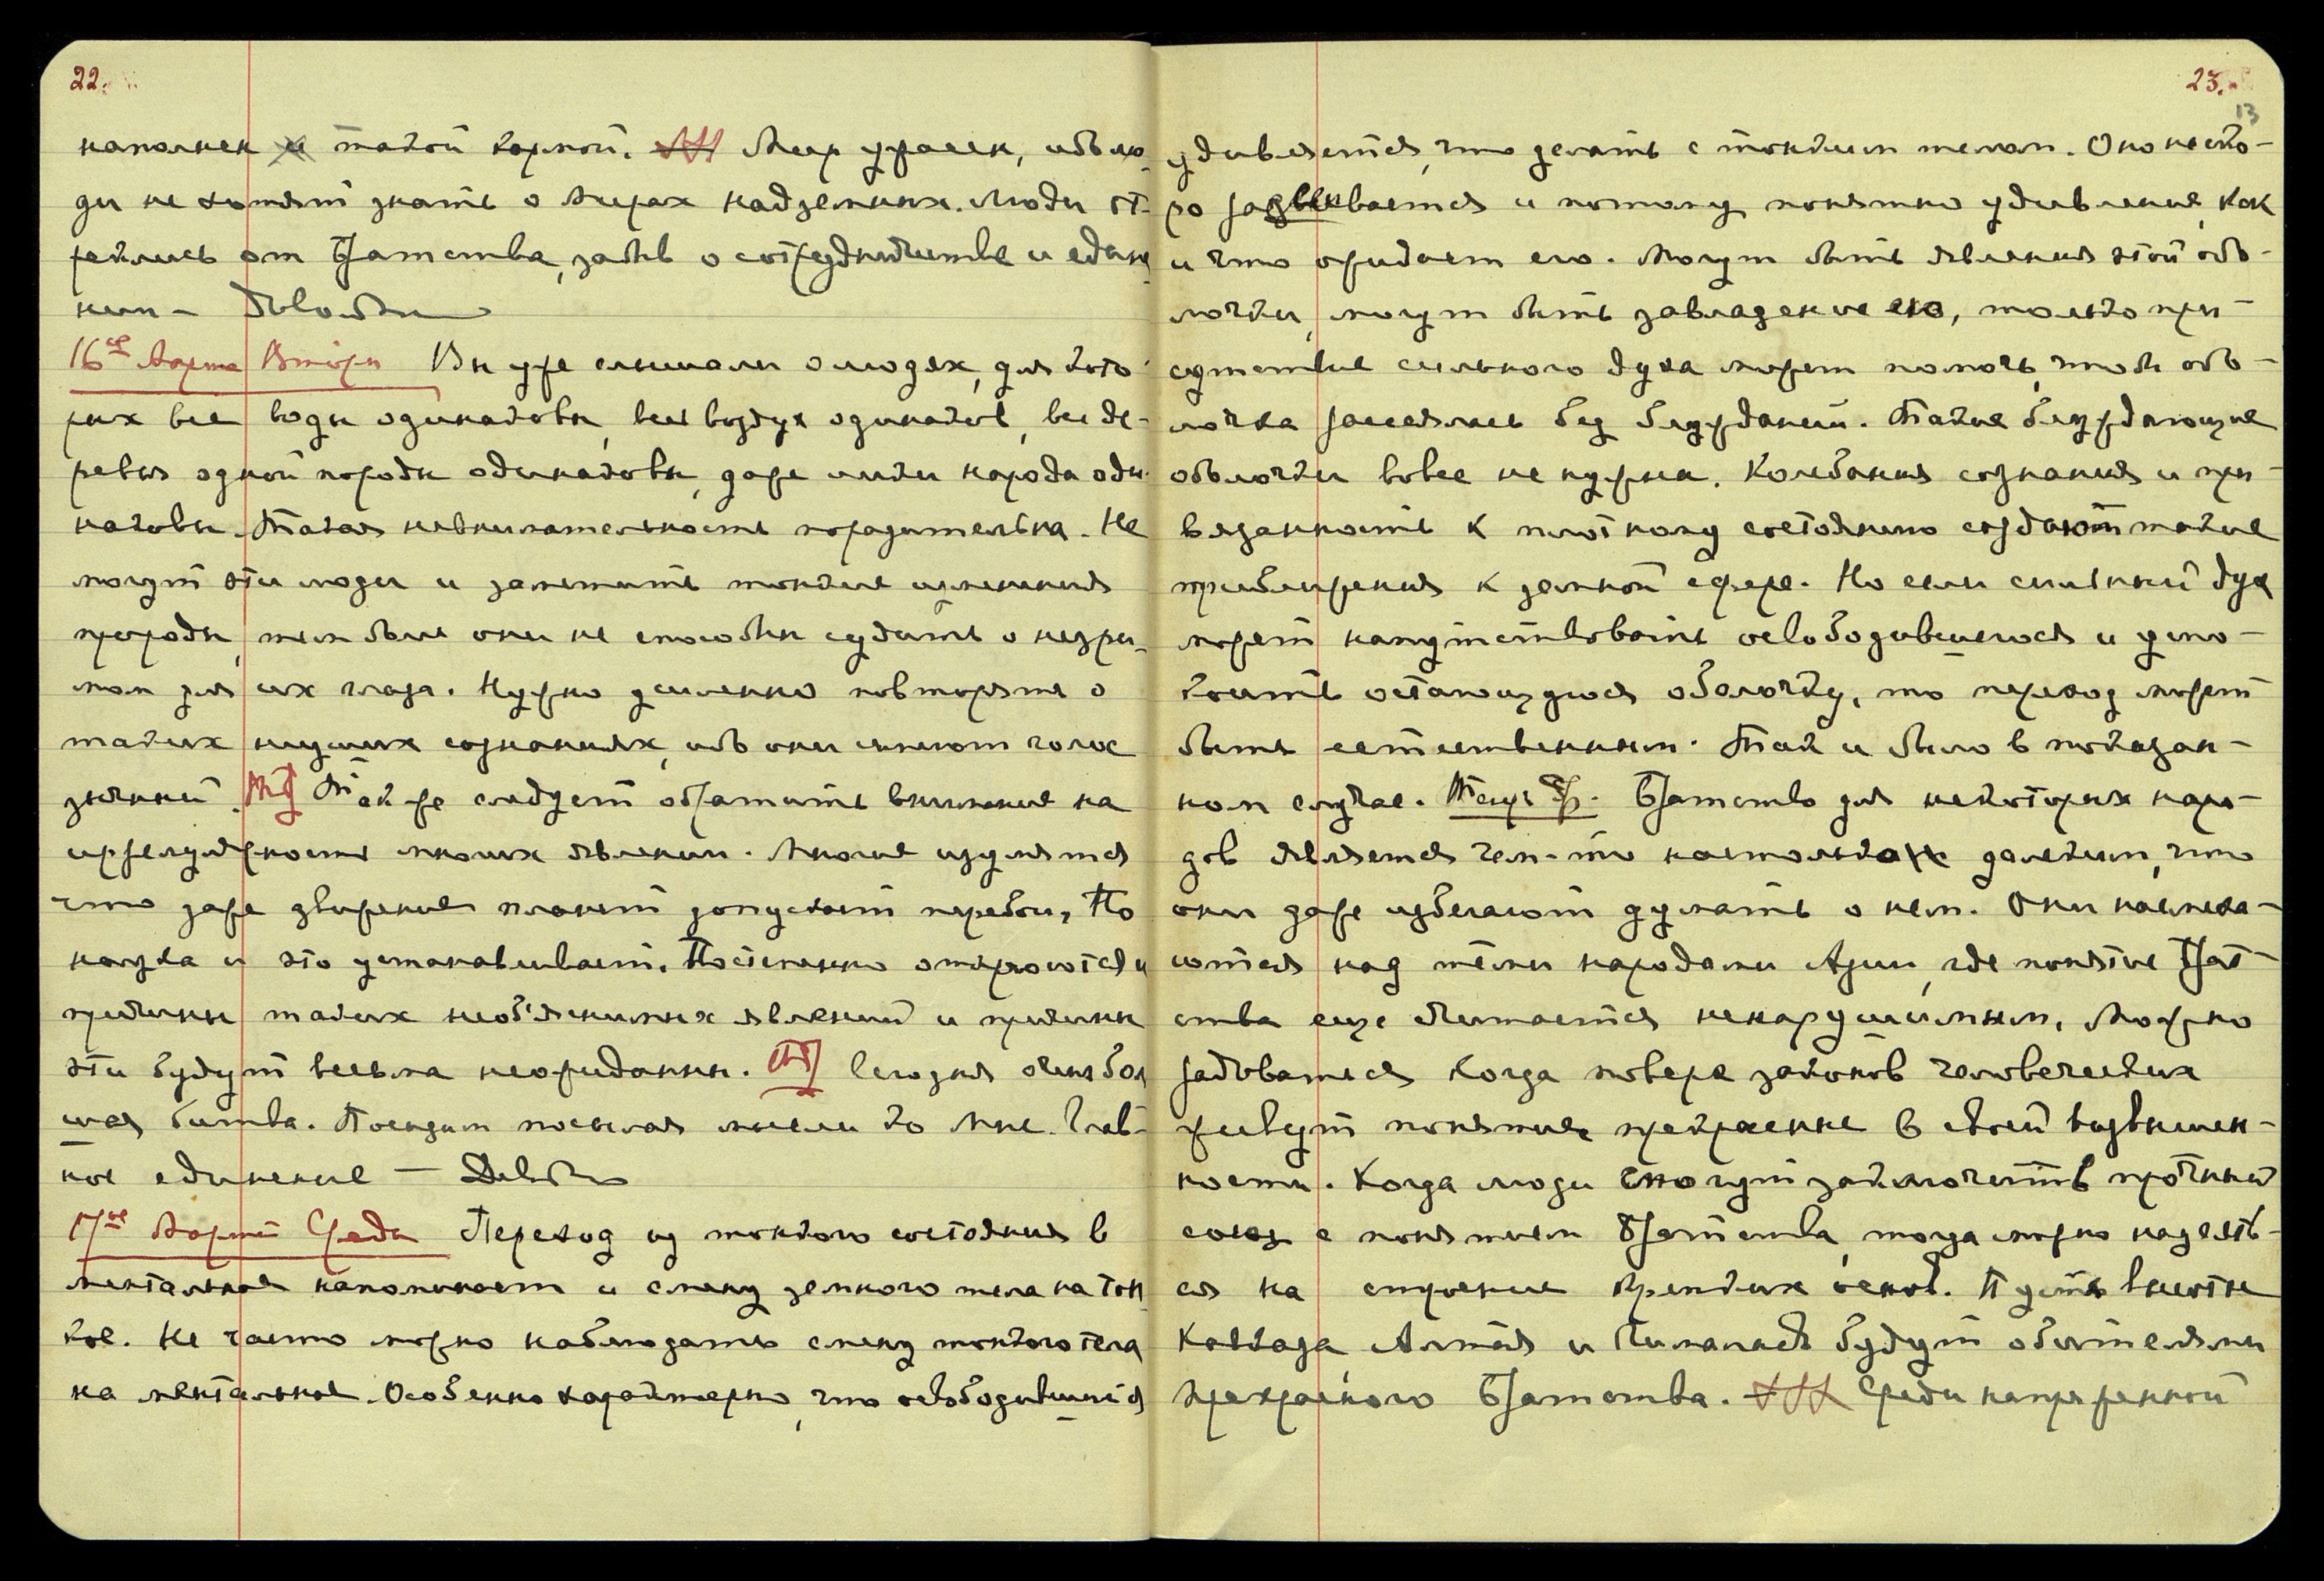 22.
наполнен и такой кармой. Мир ужасен, ибо лю-
ди не хотят знать о мирах надземных. Люди от-
реклись от Братства, забыв о сотрудничестве и едине-
нии — Довольно
16ое Марта Вторн Вы уже слышали о людях, для кото-
рых все воды одинаковы, весь воздух одинаков, все де-
ревья одной породы одинаковы, даже лики народа оди-
наковы. Такая невнимательность поразительна. Не
могут эти люди и заметить тонкие изменения
природы, тем более они не способны судить о незри-
мом для их глаза. Нужно усиленно повторять о
таких низших сознаниях, ибо они имеют голос
зычный. Так же следует обратить внимание на
иррегулярность многих явлений. Многие изумятся
что даже движение планет допускает перебои, Но
наука и это устанавливает. Постепенно откроются и
причины таких необъяснимых явлений и причины
эти будут весьма неожиданны. Сегодня очень боль
шая битва. Посидим посылая мысли ко Мне. Глав-
ное единение — Довольно
17ое Марта Среда Переход из тонкого состояния в
ментальное напоминает и смену земного тела на тон
кое. Не часто можно наблюдать смену тонкого тела
на ментальное. Особенно характерно, что освободившийся
23.
13
удивляется, что делать с тонким телом. Оно не ско-
ро и потому понятно удивление, как
и что ожидает его. Могут быть явления этой обо-
лочки, могут быть завладение ею, только при-
сутствие сильного духа может помочь, чтобы обо-
лочка без блужданий. Такие блуждающие
оболочки вовсе не нужны. Колебания сознания и при-
вязанность к плотному состоянию создают такие
приближения к земной сфере. Но если сильный дух
может напутствовать освободившегося и успо-
коить остающуюся оболочку, то переход может
быть естественным. Так и было в показан-
ном случае. Братство для некоторых наро-
дов является чем-то настолько далеким, что
они даже избегают думать о нем. Они насмеха-
ются над теми народами Азии, где понятие Брат-
ства еще считается ненарушимым. Можно
радоваться когда поверх законов человеческих
живут понятия прекрасные в своей возвышен-
ности. Когда люди смогут заключить прочный
союз с понятием Братства, тогда можно надеять-
ся на строение крепких основ. Пусть высоты
Кавказа, Алтая и Гималаев будут обителями
прекрасного Братства. Среди напряженной